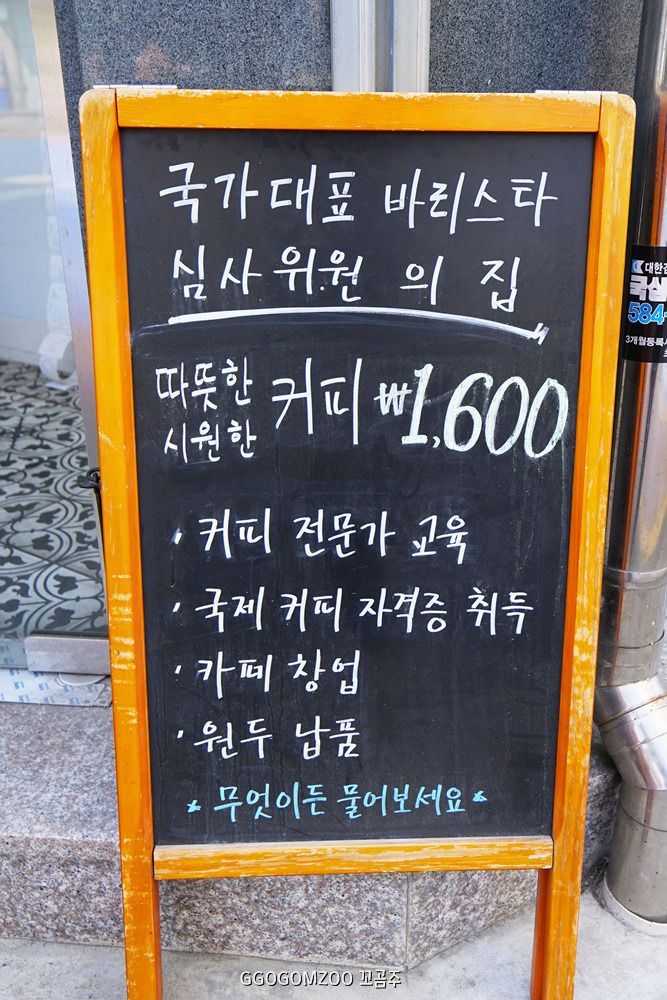 국가대표 바리스타
심사위원 의 집
따뜻한
시원한
커피 ₩1,600
· 커피 전문가 교육
· 국제 커피 자격증 취득
· 카페 창업
· 원두 납품
* 무엇이든 물어보세요 *
584-
3개월등록시
GGOGOMZOO 꼬곰주